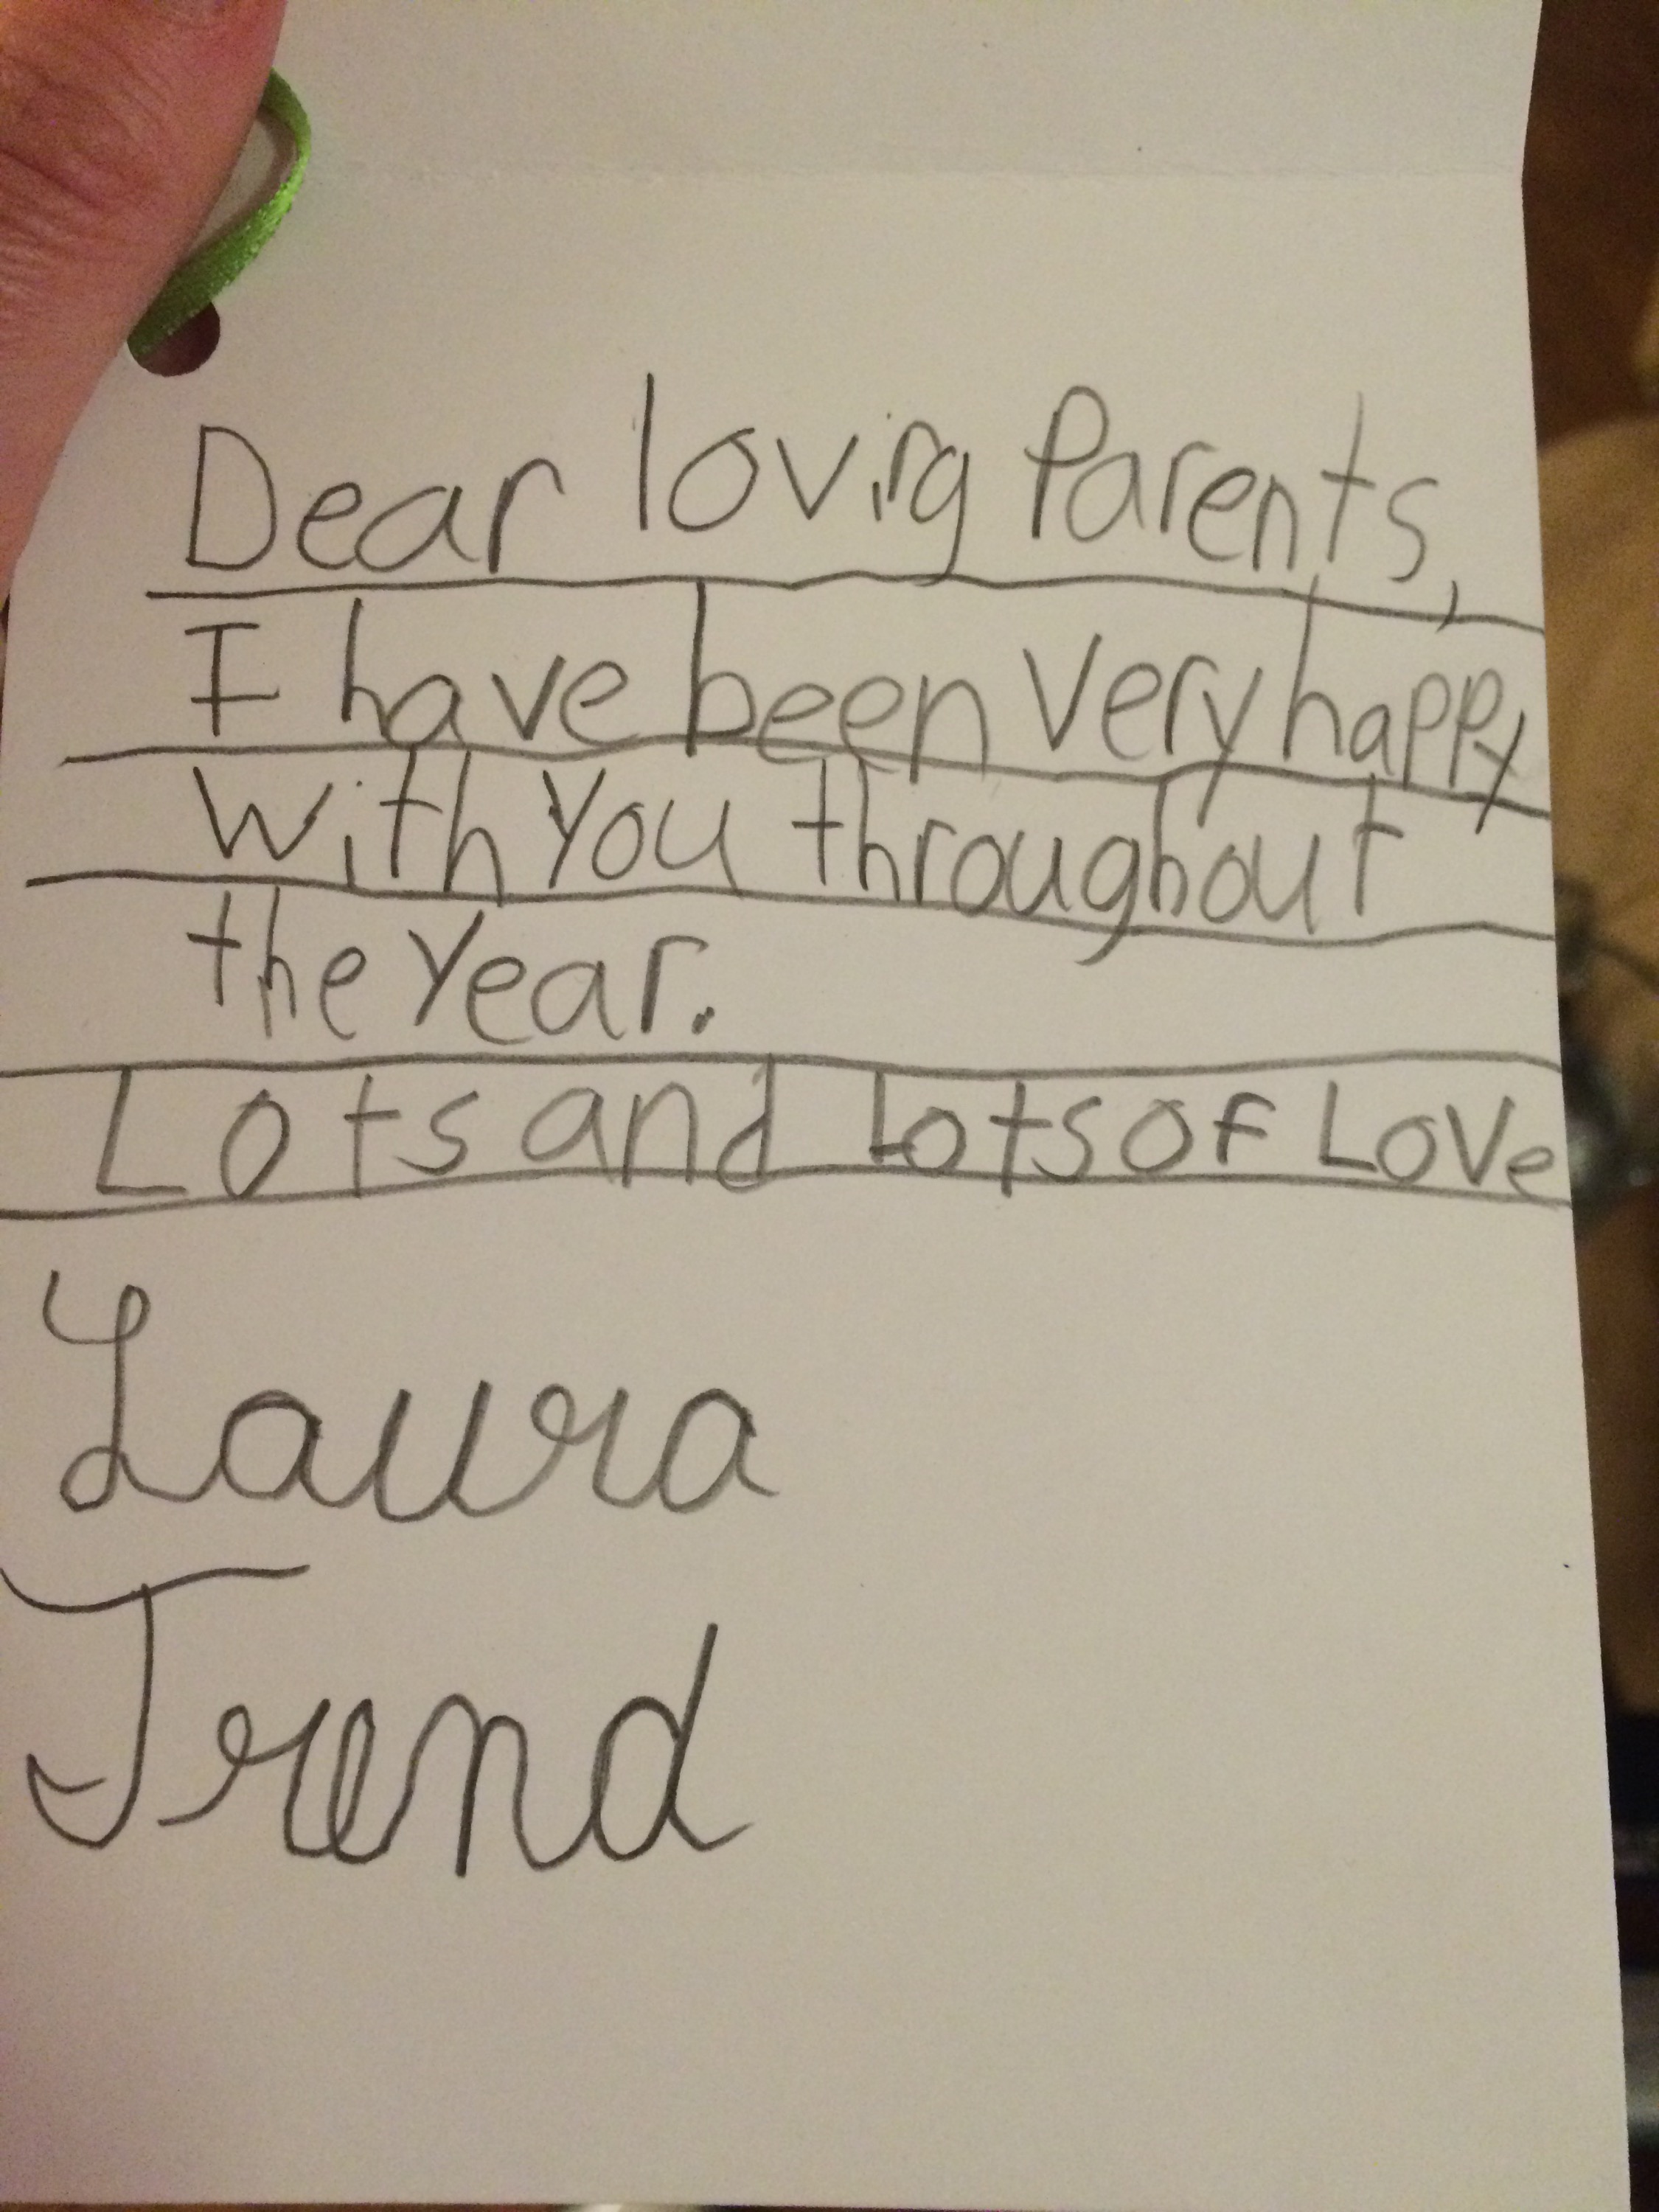 Dear loving Parents,
I have been very happy
with you throughout
the year.
Lots and Lots of Love
Laura
Trend